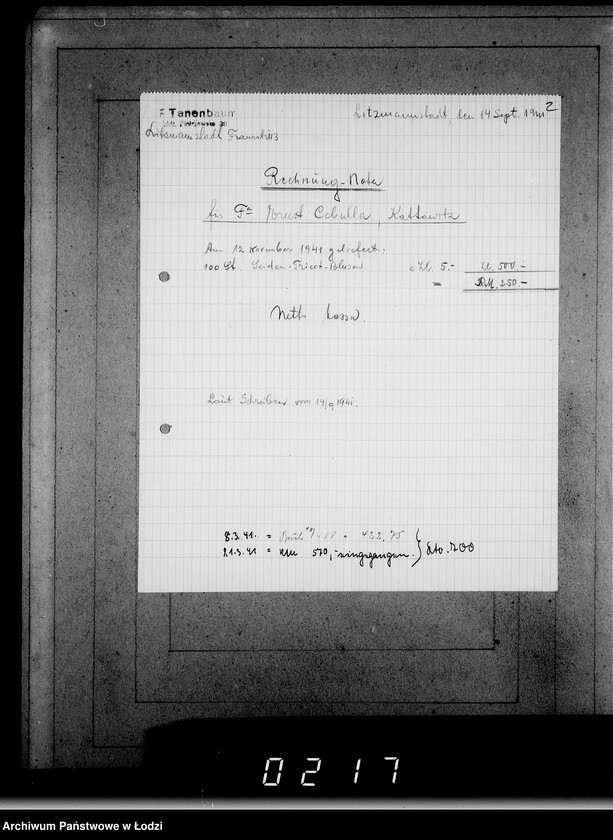 2
F Tanenbaum
Litzmannstadt, den 14 Sept. 1941
Litzmannstadt, Franzstr. 13
Rechnung-Nota
für Fa Ernst Cebulla, Kattowitz
Am 12 November 1941 geliefert:
100 St. Seiden-Tricot-Blusen a Zl. 5.- Zl. 500.-
= RM. 250.-
Netto Kassa.
Laut Schreiben vom 14/9 1941.
8.3.41. = = 422,75
21.3.41 = RM 570,- eingegangen. } Kto. 700
0217
Archiwum Państwowe w Łodzi